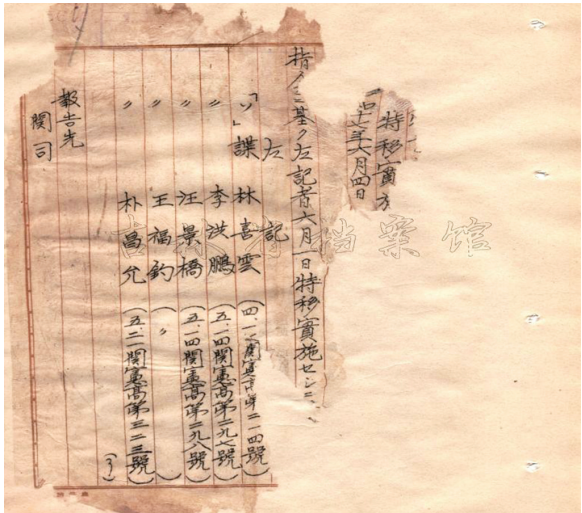 特移實
十七年六月四日
指令ニ基ク左記者六月一日特移實施セシニ
左記
「ソ」諜 林喜雲 (四、一二關憲高第二一四號)
〃 李洪鵬 (五、一四關憲高第二九七號)
〃 汪景橋 (五、一四關憲高第二九八號)
〃 王福鈞 ( 〃 )
〃 朴昌允 (五、二一關憲高第三二三號)
(了)
報告先
関司
档案馆